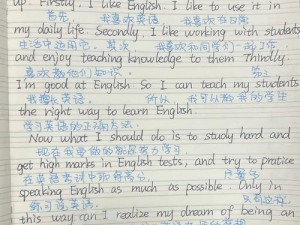 up. Firstly. I like English. I like to use it in
首先, 我喜欢英语 我喜欢在日常
my daily life. Secondly. I like working with students
生活中使用它. 其次 我喜欢和同学们一起工作
and enjoy teaching knowledge to them Thirdly.
喜欢教他们知识
I'm good at English. So I can teach my students
我擅长英语. 所以 我可以教我的学生
the right way to learn English.
学习英语的正确方法
Now what I should do is to study hard and
现在我要做的就是努力学习
get high marks in English tests, and try to pratice
在英语考试中取得高分
speaking English as much as possible. Only in
练习说英语.
this way can I realize my dream of being an